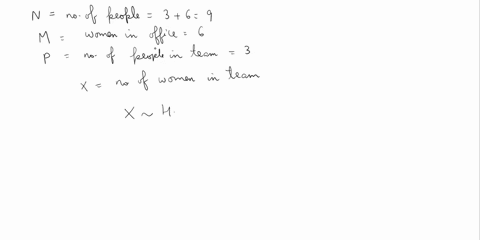 N = no. of people = 3 + 6 = 9
M = women in office = 6
P = no. of people in team = 3
X = no of women in team
X ~ H.